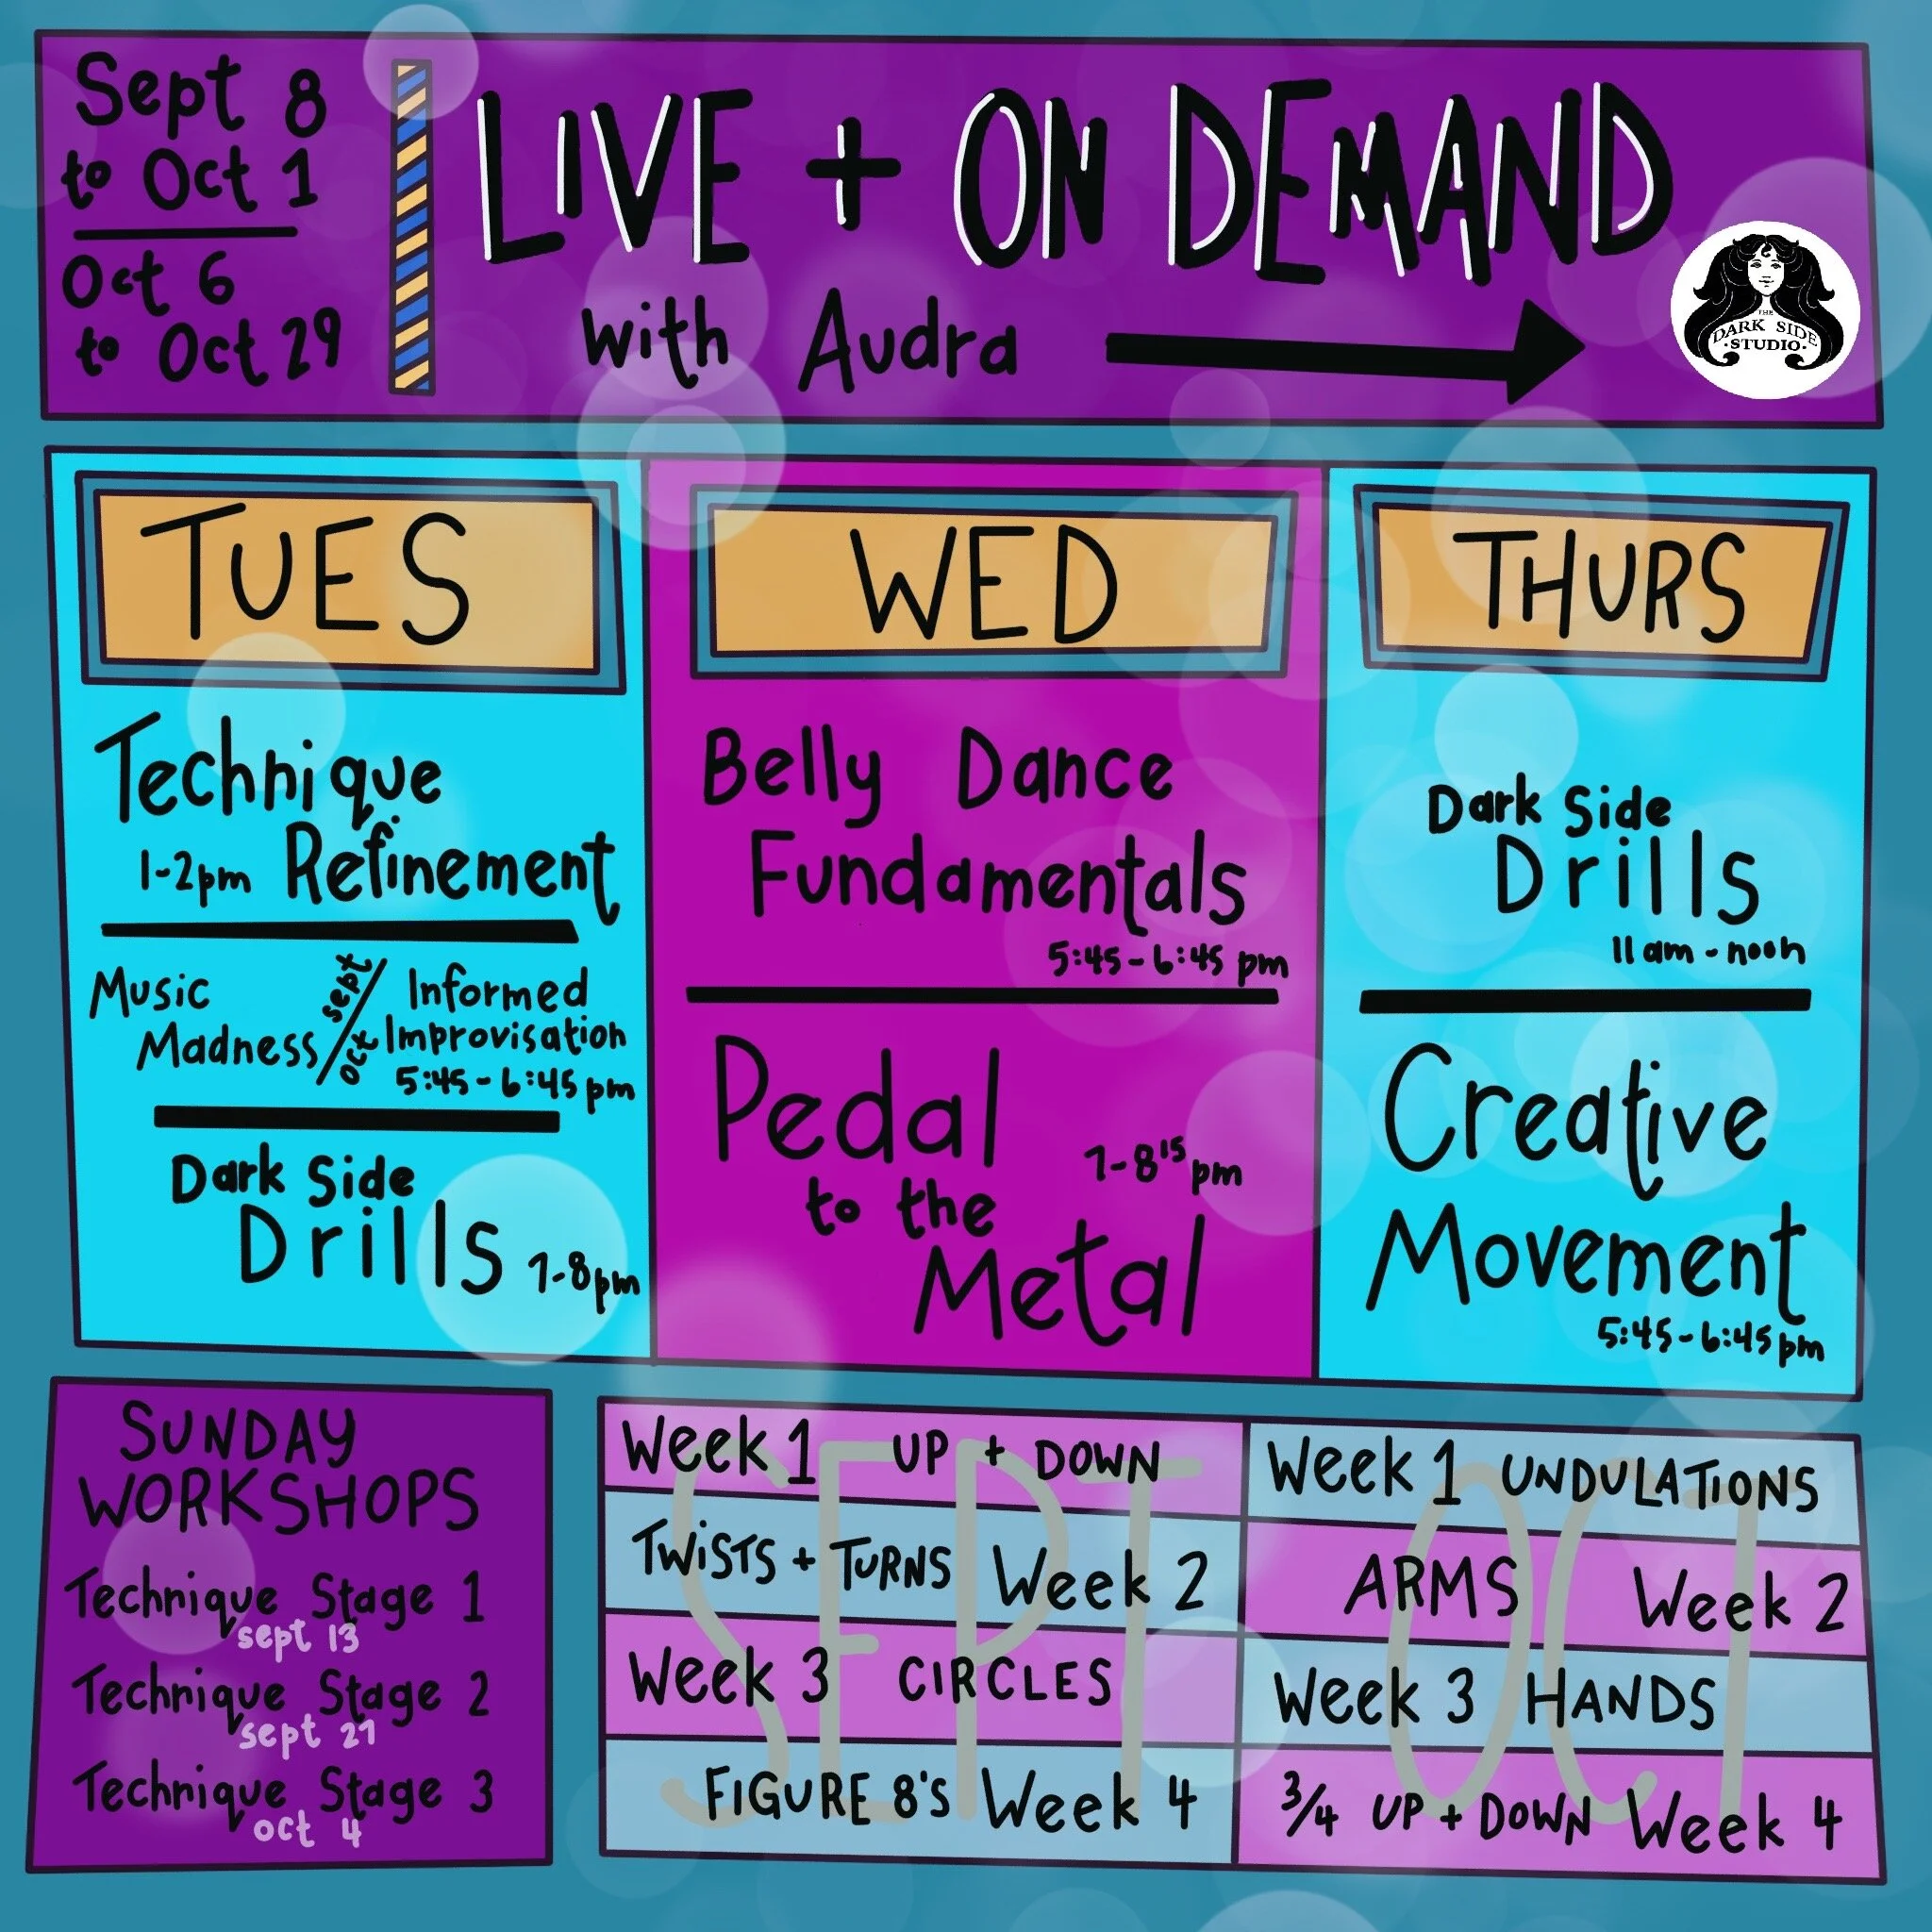 Sept 8
to Oct 1
Oct 6
to Oct 29
LIVE + ON DEMAND
with Audra
THE
DARK SIDE
·STUDIO·
TUES
Technique
1-2pm Refinement
Music
Madness
sept
oct
Informed
Improvisation
5:45-6:45 pm
Dark Side
Drills 7-8pm
WED
Belly Dance
Fundamentals
5:45-6:45 pm
Pedal
to the
Metal
7-8¹⁵pm
THURS
Dark Side
Drills
11 am - noon
Creative
Movement
5:45-6:45 pm
SUNDAY
WORKSHOPS
Technique Stage 1
sept 13
Technique Stage 2
sept 27
Technique Stage 3
oct 4
SEPT
Week 1 UP + DOWN
TWISTS + TURNS Week 2
Week 3 CIRCLES
FIGURE 8'S Week 4
OCT
Week 1 UNDULATIONS
ARMS Week 2
Week 3 HANDS
3/4 UP + DOWN Week 4